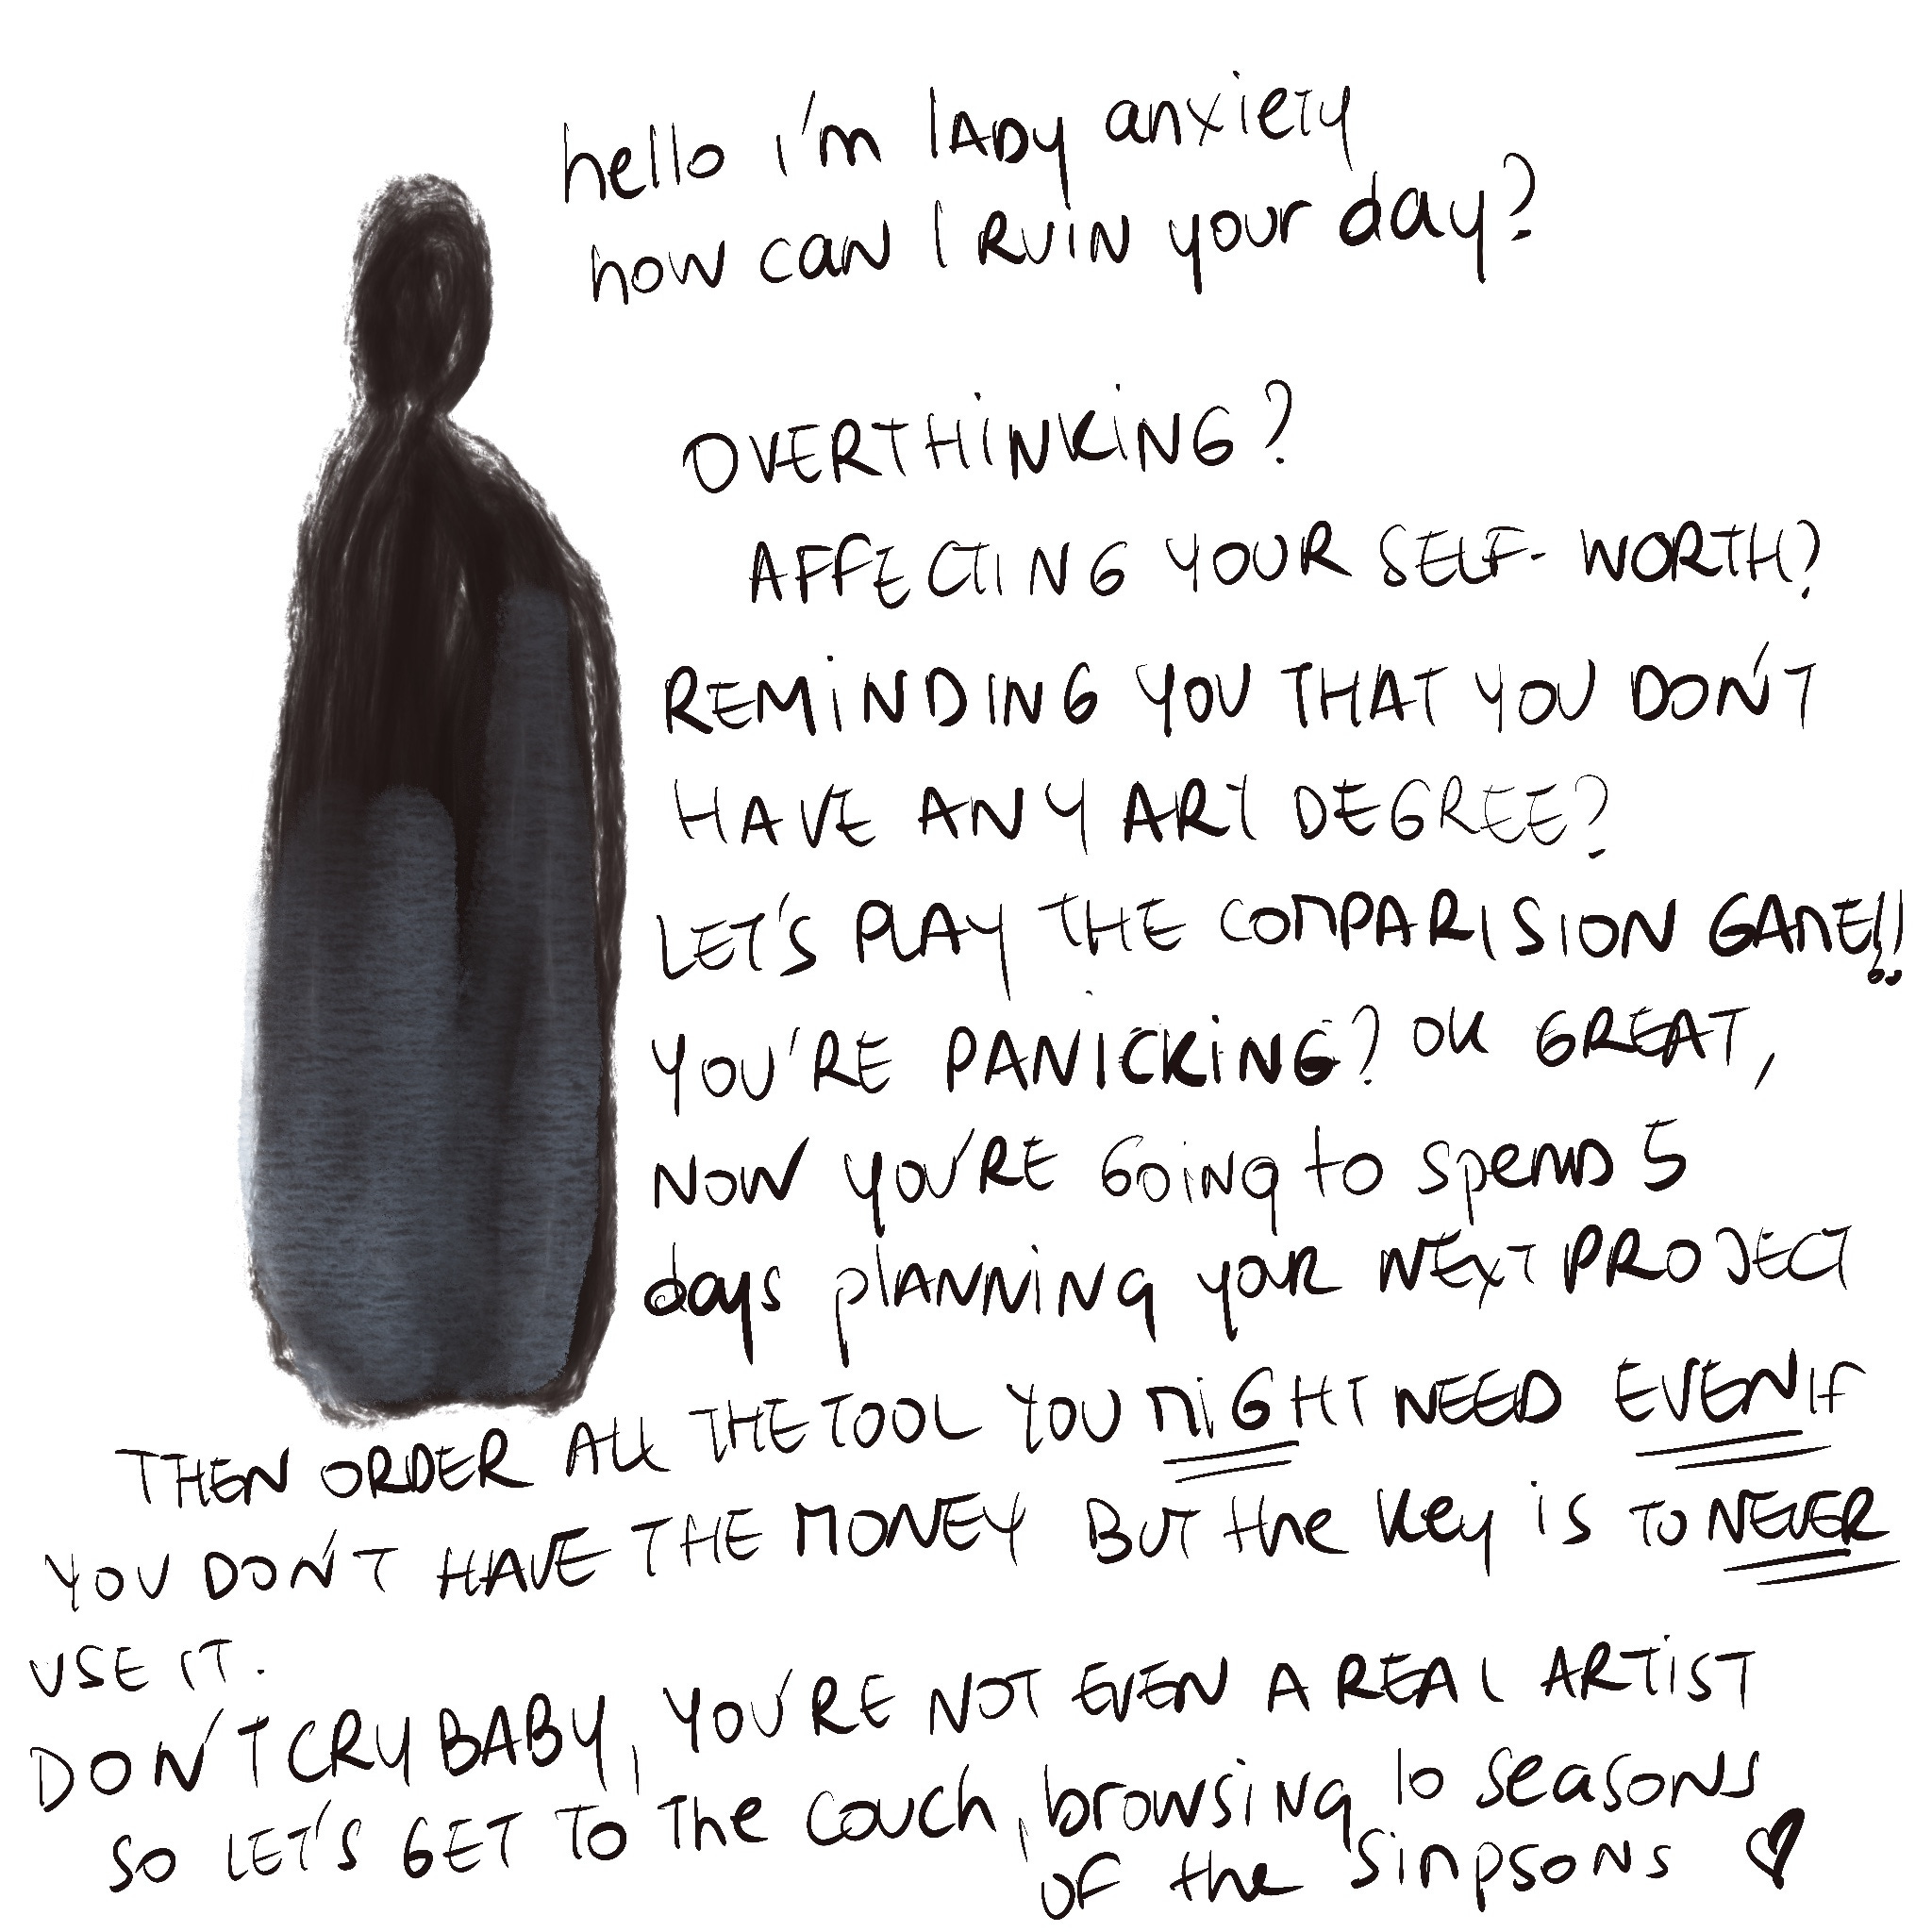 hello i'm lADy anxiety
how can I RUiN your day?
OVERTHiNKiNG?
AFFECTING YOUR SELF-WORTH?
REMiNDING YOU THAT YOU DON'T
HAVE ANY ART DEGREE?
LET'S PLAY THE COMPARISION GAME!!
YOU'RE PANICKiNG? OK GREAT,
NOW YOU'RE GoiNg to spenD 5
days plANNiNg youR NEXT PROJECT
THEN ORDER ALL THE TOOL YOU MiGHT NEED EVEN IF
YOU DON'T HAVE THE MONEY BUT the Key is TO NEVER
USE IT.
DON'T CRY BABY, YOU'RE NOT EVEN A REAL ARTiST
so LET'S GET TO The couch, browsiNg 10 seasoNs
of the SinpsoNs ♥